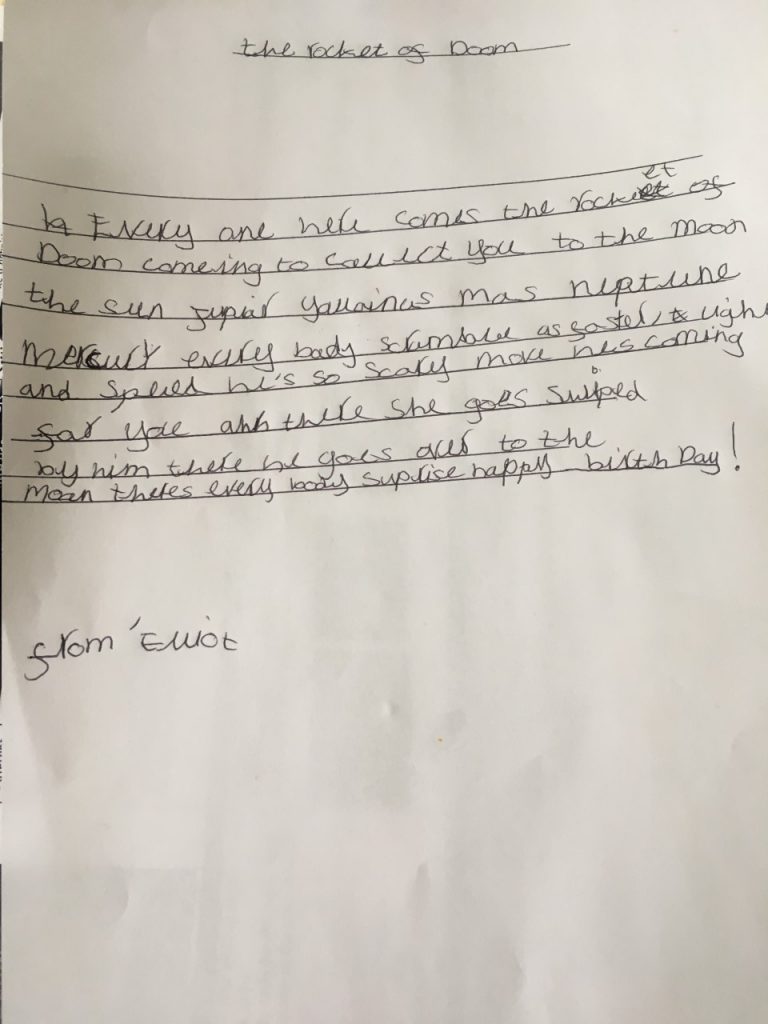 the rocket of Doom
Every one here comes the rocket of
Doom comeing to collect you to the moon
the sun jupiar yauainus mas neptune
Mercury every body scrumble as faster, & light
and speed he's so scary move hes coming
for you ahh there she goes swiped
by him there he goes over to the
moon theres every body suprise happy birth Day!
from Elliot